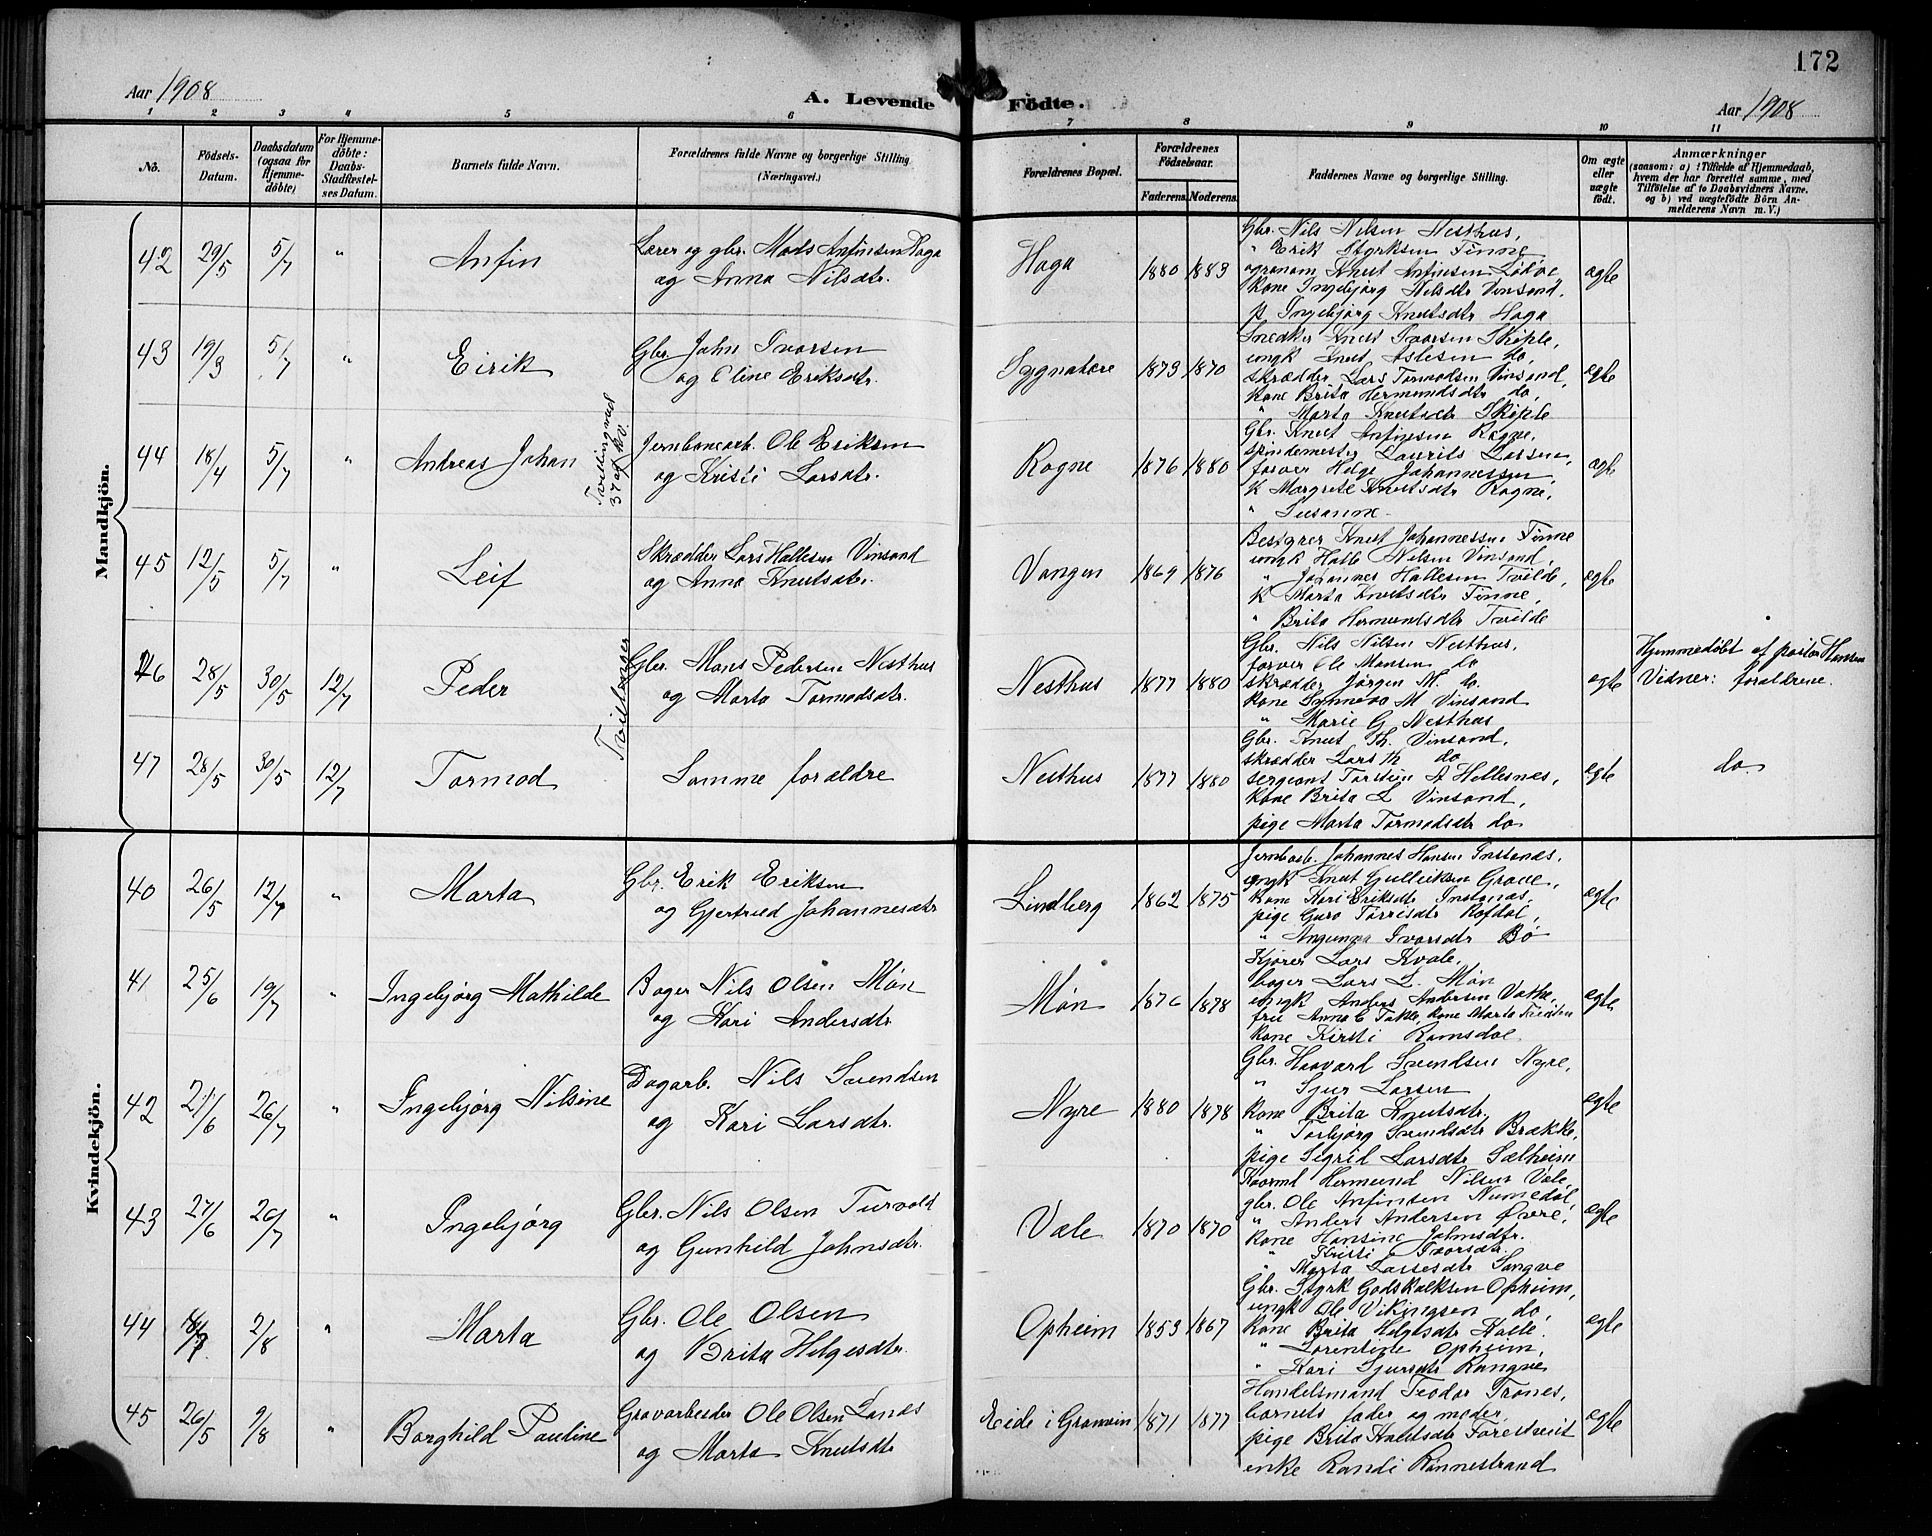 172
Aar 1908
A. Levende Födte.
Aar 1908
1 2 3 4 5 6 7 8 9 10 11
No.
Födsels-Datum.
Daabsdatum (ogsaa for Hjemmedöbte)
For Hjemmedöbte: Daabs-Stadfæstelses Datum.
Barnets fulde Navn.
Forældrenes fulde Navne og borgerlige Stilling (Næringsvei.)
Forældrenes Bopæl.
Forældrenes Födselsaar.
Faderens. Moderens.
Faddernes Navne og borgerlige Stilling.
Om ægte eller uægte födt.
Anmærkninger
(saasom: a) i Tilfælde af Hjemmedaab, hvem der har forrettet samme, med Tilföielse af to Daabsvidners Navne, og b) ved uægtefödte Börn Anmelderens Navn m. V.)
Mandkjön.
42 29/5 5/7 " Anfin
Lærer og gbr. Mads Anfinsen Haga
og Anna Nilsdtr.
Haga 1880 1883
Gbr. Nils Nilsen Nesthus,
" Erik Styrksen Finne,
agronom Knut Anfinsen Lødve,
Kone Ingebjørg Nilsdtr Vinsand,
p Ingebjørg Knutsdtr Haga
ægte
43 19/3 5/7 " Eirik
Gbr. John Ivarsen
og Eline Eriksdtr.
1873 1870
Snedker Knut Ivarsen Skiple,
ungk Knut Aslesen do,
skrædder Lars Tormodsen Vinsand,
Kone Brita Hermundsdtr do,
" Marta Knutsdtr Skiple
ægte
44 18/4 5/7 " Andreas Johan
Tvillingmed
37 af Kv.
Jernbanearb. Ole Eriksen
og Kristi Larsdtr.
Rogne 1876 1880
Gbr. Knut Anfinsen Rogne,
spindemester Laurits Larsen,
farver Helge Johannessen,
K Margrete Knutsdtr Rogne,
" Susanne
ægte
45 12/5 5/7 " Leif
Skrædder Lars Hallesen Vinsand
og Anna Knutsdtr.
Vangen 1869 1876
Bestyrer Knut Johannessen Finne
ungk Halle Nilsen Vinsand,
" Johannes Hallesen Tvilde,
K Marta Knutsdtr Finne,
" Brita Hermundsdtr Tvilde
ægte
46 28/5 30/5 12/7 Peder
Tvillinger
Gbr. Mons Pedersen Nesthus
og Marta Tormodsdtr.
Nesthus 1877 1880
Gbr. Nils Nilsen Nesthus,
farver Ole Monsen do
skrædder Jørgen M. do.
Kone Synneva M Vinsand
" Marie G Nesthus
ægte
Hjemmedøbt af pastor Hansen
Vidner: forældrene.
47 28/5 30/5 12/7 Tormod
Samme forældre
Nesthus 1877 1880
Gbr. Knut Th. Vinsand,
skrædder Lars Th do
sergeant Torstein A Hellesnes,
Kone Brita L Vinsand,
pige Marta Tormodsdtr do
ægte
do.
Kvindekjön.
40 26/5 12/7 " Marta
Gbr. Erik Eriksen
og Gjertrud Johannesdtr
Lindberg 1862 1875
Jernbarb. Johannes Hansen Instenes,
ungk Knut Gulleiksen Grove,
Kone Kari Eriksdtr Instenes,
pige Guro Torresdtr Rofdal,
" Angunna Ivarsdtr Bø
ægte
41 25/6 19/7 " Ingebjørg Mathilde
Bager Nils Olsen Møn
og Kari Andersdtr
Møn 1876 1878
Kjører Lars Kvale,
bager Lars L. Møn
ungk Anders Andersen Vathe,
fru Anna E Takle, Kone Marta
Kone Kirsti Romsdal
ægte
42 21/6 26/7 " Ingebjørg Nilsine
Dagarb. Nils Svendsen
og Kari Larsdtr.
Nyre 1880 1878
Gbr. Haavard Svendsen Nyre,
" Sjur Larsen
Kone Brita Knutsdtr,
" Torbjørg Svendsdtr Brække,
pige Sigrid Larsdtr Sælheim
ægte
43 27/6 26/7 " Ingebjørg
Gbr. Nils Olsen
og Gunhild Johnsdtr.
Vale 1870 1870
Kaarmd Hermund Nilsen Vale,
gbr. Ole Anfinsen Numedal,
" Anders Andersen Øvre,
Kone Hansine Johnsdtr.
" Kristi Ivarsdtr.
" Marta Larsesdtr Sangve
ægte
44 18/7 2/8 " Marta
Gbr. Ole Olsen
og Brita Helgesdtr.
Opheim 1853 1867
Gbr. Styrk Godskalksen Opheim,
ungk Ole Vikingsen do,
Kone Brita Helgesdtr
" Lorentine Opheim,
" Kari Sjursdtr Rongve
ægte
45 26/5 9/8 " Borghild Pauline
Gravarbeider Ole Olsen Lands
og Marta Knutsdtr
Eide i Granvin 1871 1877
Handelsmand Teodor Trones,
barnets fader og moder,
pige Brita Knutsdtr
enke Randi Rønnestrand
ægte